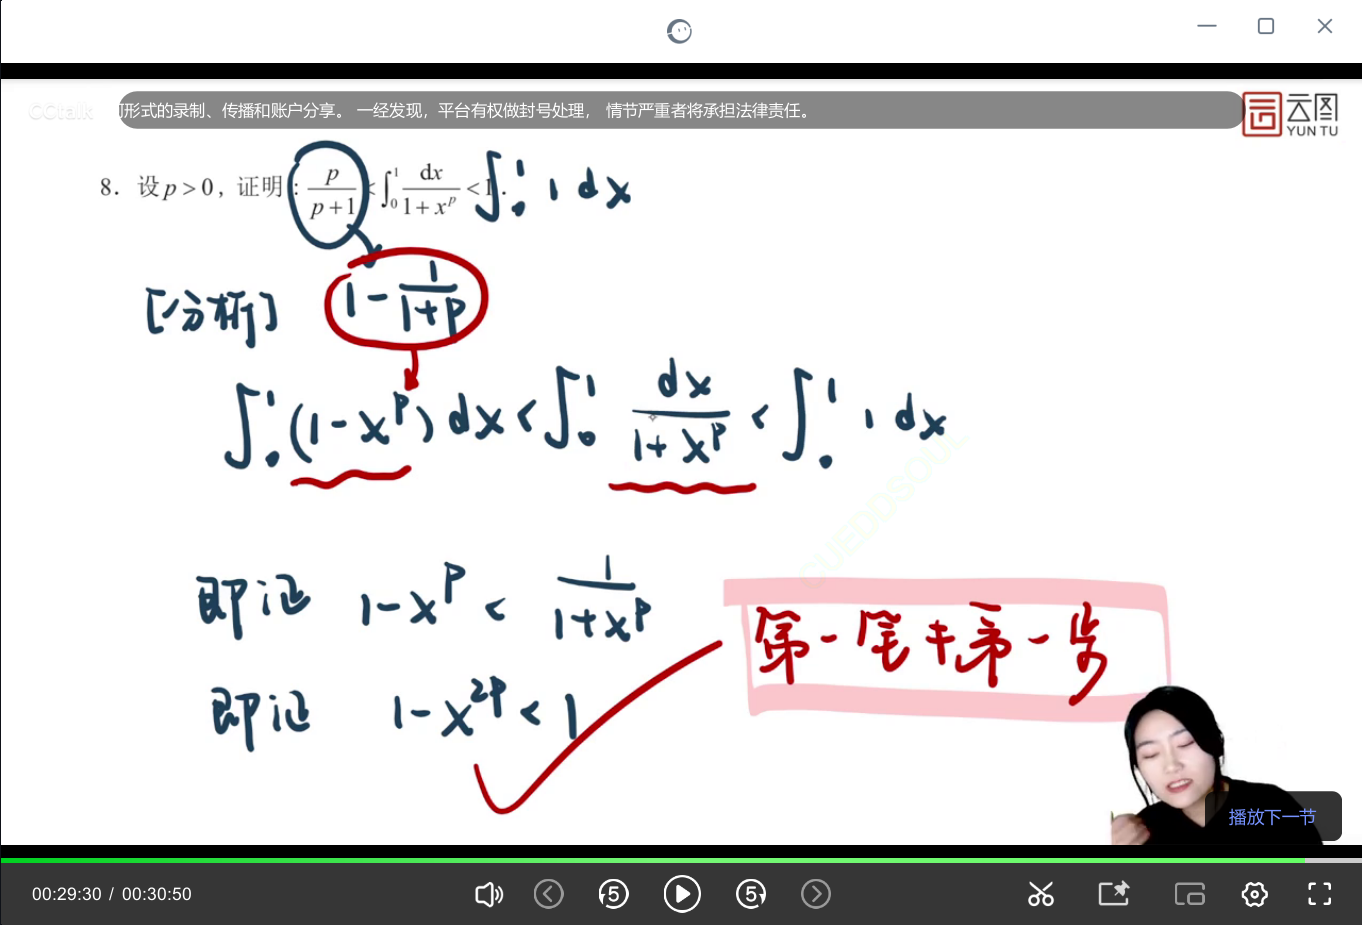 CCtalk
形式的录制、传播和账户分享。 一经发现，平台有权做封号处理， 情节严重者将承担法律责任。
云图
YUN TU
8. 设 p > 0 , 证明 : p/(p+1) < ∫₀¹ dx/(1+x^p) < 1 . ∫₀¹ 1 dx
[分析] 1 - 1/(1+p)
∫₀¹ (1 - x^p) dx < ∫₀¹ dx/(1+x^p) < ∫₀¹ 1 dx
即证 1 - x^p < 1/(1+x^p)
第一笔 + 第一步
即证 1 - x^2p < 1
播放下一节
00:29:30 / 00:30:50
5
5